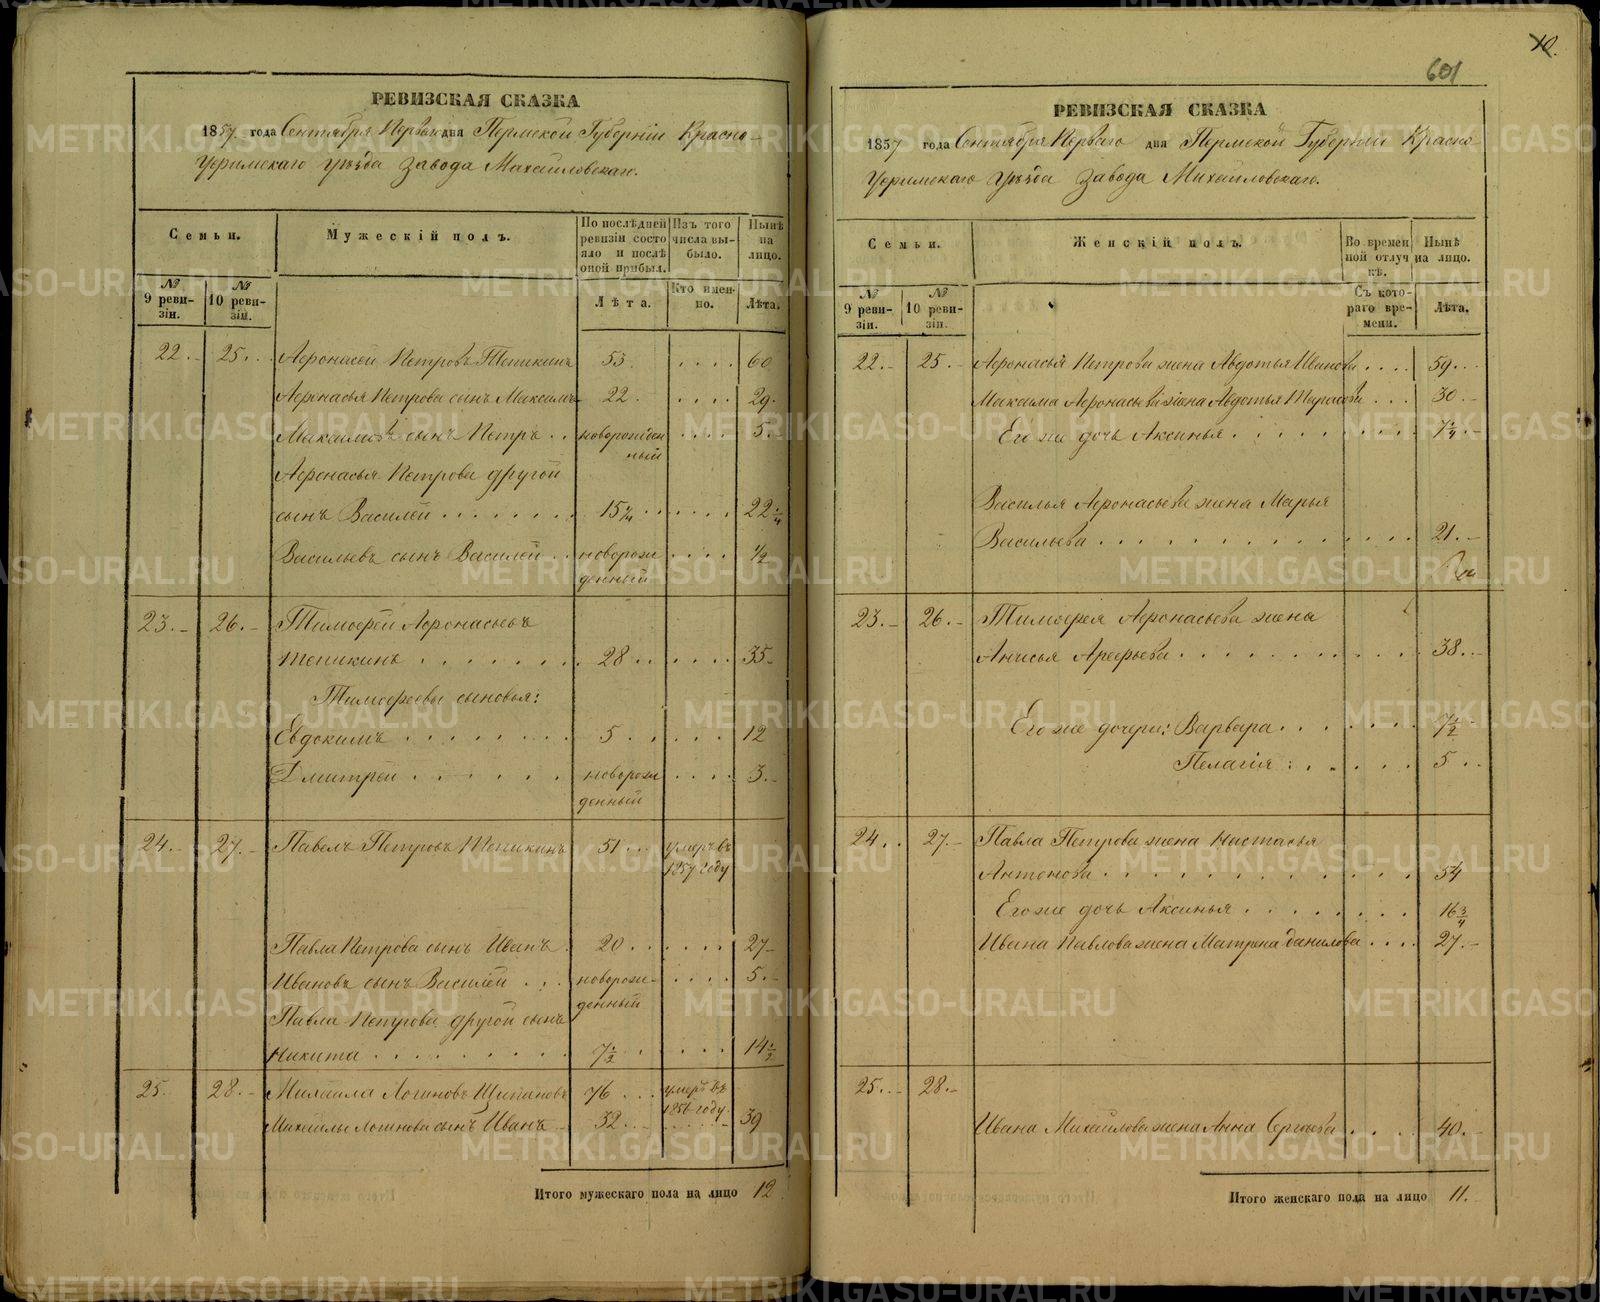 РЕВИЗСКАЯ СКАЗКА
1857 года Сентября Перваго дня Пермской Губерніи Красно-
Уфимскаго уѣзда завода Михайловскаго.
Семьи.
Мужескій полъ.
По послѣдней ревизіи состояло и послѣ оной прибыл.
Изъ того числа выбыло.
Нынѣ на лицо.
№ 9 ревизіи.
№ 10 ревизіи.
Лѣта.
Кто именно.
Лѣта.
22. 25. Афонасей Петровъ Тепикинъ 53 60
Афонасья Петрова сынъ Максимъ 22 29.
Максимовъ сынъ Петръ новорожденный 5.
Афонасья Петрова другой
сынъ Василей 15 1/4 22 1/4
Васильевъ сынъ Василей новорожденный 1/2
23. 26. Тимофей Афонасьевъ
Тепикинъ 28 35
Тимофеевы сыновья:
Евдокимъ 5 12
Дмитрей новорожденный 3.
24. 27. Павелъ Петровъ Тепикинъ 51 умеръ въ 1857 году
Павла Петрова сынъ Иванъ 20 27
Ивановъ сынъ Василей новорожденный 5.
Павла Петрова другой сынъ
Никита 7 1/2 14 1/2
25. 28. Михаила Логиновъ 76 умеръ въ 1856 году
Михайлы Логинова сынъ Иванъ 32 39
Итого мужескаго пола на лицо 12
10.
601
РЕВИЗСКАЯ СКАЗКА
1857 года Сентября Перваго дня Пермской Губерніи Красно
Уфимскаго уѣзда завода Михайловскаго.
Семьи.
Женскій полъ.
Во временной отлучкѣ.
Нынѣ на лицо.
№ 9 ревизіи.
№ 10 ревизіи.
Съ котораго времени.
Лѣта.
22. 25. Афонасья Петрова жена Авдотья Иванова 59
Максима Афонасьева жена Авдотья Тарасова 30
Его же дочь Аксинья 7 1/4
Василья Афонасьева жена Марья
Васильева 21.
23. 26. Тимофея Афонасьева жена
Анисья Арефьева 38
Его же дочери: Варвара 7 1/2
Пелагія 5
24. 27. Павла Петрова жена Настасья
Антонова 54
Его же дочь Аксинья 16 3/4
Ивана Павлова жена Матрена Данилова 27.
25. 28.
Ивана Михайлова жена Анна Сергѣева 40.
Итого женскаго пола на лицо 11.
METRIKI.GASO-URAL.RU